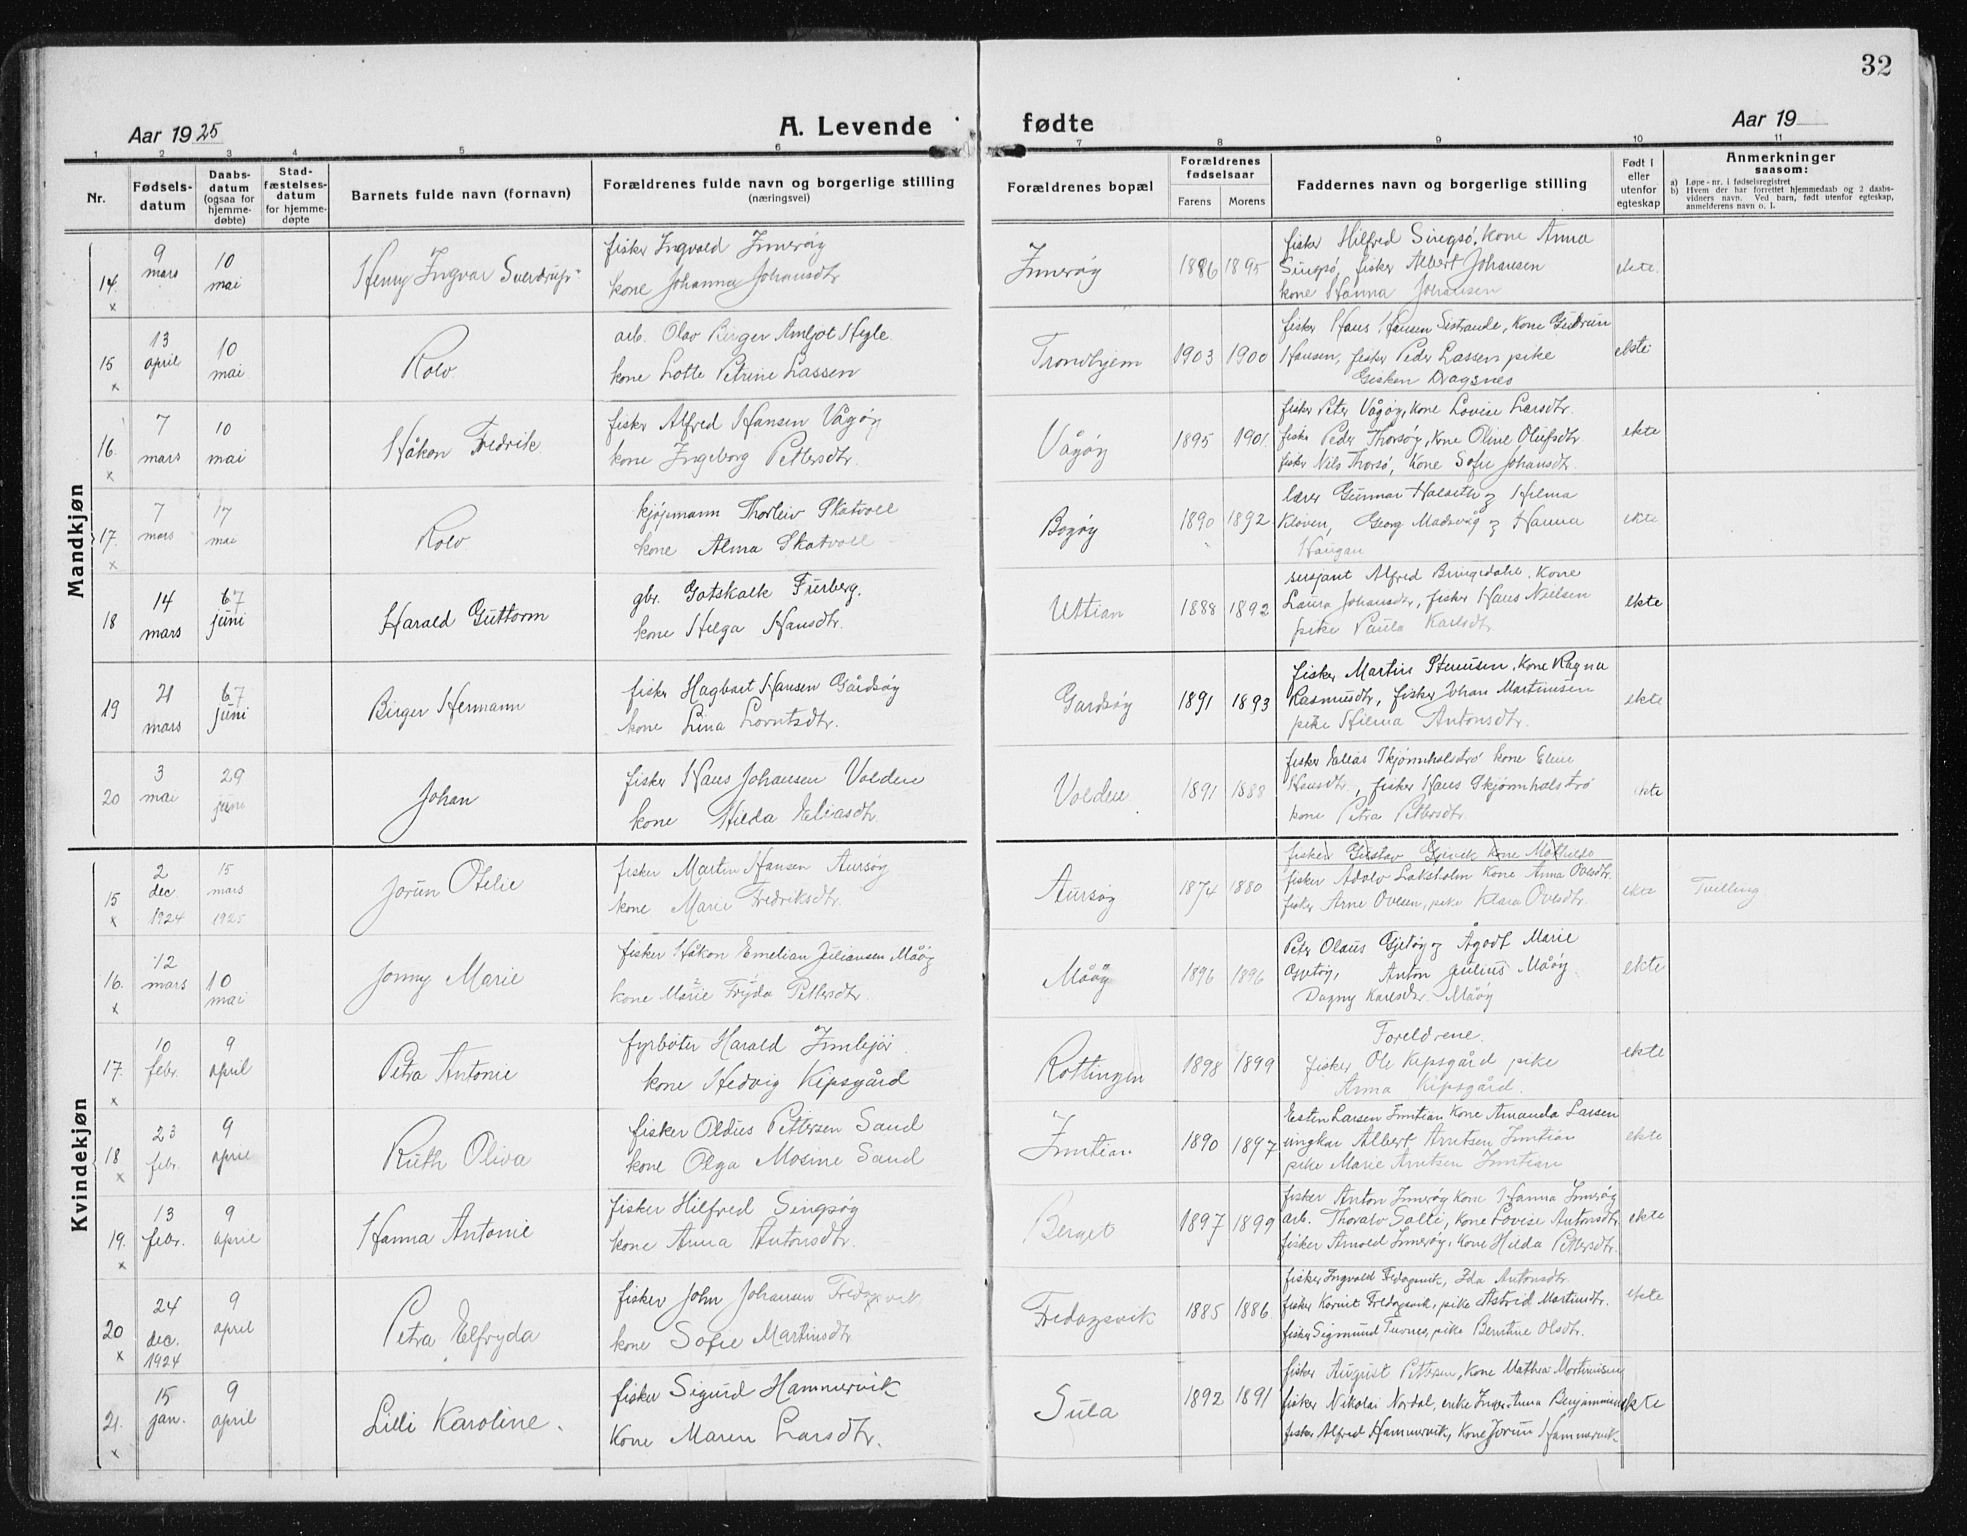 32
Aar 1925
A. Levende fødte
Aar 19
1 2 3 4 5 6 7 8 9 10 11
Nr.
Fødsels-
datum
Daabs-
datum
(ogsaa for
hjemme-
døbte)
Stad-
fæstelses-
datum
for hjemme-
døpte
Barnets fulde navn (fornavn)
Forældrenes fulde navn og borgerlige stilling
(næringsvei)
Forældrenes bopæl
Forældrenes
fødselsaar
Farens Morens
Faddernes navn og borgerlige stilling
Født i
eller
utenfor
egteskap
Anmerkninger
saasom:
a) Løpe-nr. i fødselsregistret
b) Hvem der har forrettet hjemmedaab og 2 daabs-
vidners navn. Ved barn, født utenfor egteskap,
anmelderens navn o. l.
Mandkjøn
14 x
9 mars
10 mai
Henny Ingvar Sverdrup
fisker Ingvald Innerøy
kone Johanna Johansdtr
Innerøy
1886 1895
fisker Hilfred Singsø, Kone Anna
Singsø, fisker Albert Johansen
kone Hanna Johansen
ekte.
15 x
13 april
10 mai
Rolv
arb. Olav Birger Amljot Hegle
kone Lotte Petrine Lassen
Trondhjem
1903 1900
fisker Hans Hansen Sistrande, Kone Gudrun
Hansen, fisker Peder Lassen pike
Gisken Dragsnes
ekte
16. x
7 mars
10 mai
Håkon Fredrik
fisker Alfred Hansen Vågøy
kone Ingeborg Pettersdtr
Vågøy
1895 1901
fisker Peter Vågøy, Kone Lovise Larsdtr.
fisker Peder Thorsøy, Kone Oline Olufsdtr
fisker Nils Thorsø, Kone Sofie Johansdtr
ekte
17. x
7 mars
17 mai
Rolv
kjøpmann Thorleiv Skatvoll
kone Alma Skatvoll
Bogøy
1890 1892
lærer Gunnar Halseth og Hilma
Kløven, Georg Madsvåg og Hanna
Haugan
ekte
18
14 mars
7 juni
Harald Guttorm
gbr. Gotskalk Furberg.
kone Helga Hansdtr.
Uttian
1888 1892
sersjant Alfred Bringedahl. Kone
Laura Johansdtr, fisker Hans Nielsen
pike Paula Karlsdtr
ekte
19
21 mars
7 juni
Birger Hermann
fisker Hagbart Hansen Gårdsøy
kone Lina Lorntsdtr.
Gardsøy
1891 1893
fisker Martin Stenusen, Kone Ragna
Rasmusdtr, fisker Johan Martinusen
pike Hilma Antonsdtr.
ekte
20
3 mai
29 juni
Johan
fisker Hans Johansen Volden
kone Hilda Eliasdtr.
Volden
1891 1888
fisker Elias Skjømholstrø kone Eline
Hansdtr, fisker Hans Skjømholstrø
kone Petra Pettersdtr.
ekte
Kvindekjøn
15 x
2 dec. 1924
15 mars 1925
Jorun Otelie
fisker Martin Hansen Aursøy
kone Marie Fredriksdtr.
Aursøy
1874 1880
fisker Gustav kone Mathilde
fisker Adolv Laksholm kone Anna Ovesdtr.
fisker Arne Ovesen, pike Klara Ovesdtr.
ekte
Tvilling
16. x
12 mars
10 mai
Jonny Marie
fisker Håkon Emelian Juliansen Måøy
kone Marie Frÿda Pettersdtr.
Måøy
1896 1896
Peter Olaus Gjetøy og Ågodt Marie
Gjetøy, Anton Julius Måøy.
Dagny Karlsdtr. Måøy
ekte
17. x
10 febr.
9 april
Petra Antonie
fyrbøter Harald Innlejör
kone Hedvig Kipsgård
Rottingen
1898 1899
Foreldrene.
fisker Ole Kipsgård pike
Anna Kipsgård.
ekte
18 x
23 febr.
9 april
Ruth Oliva
fisker Oldus Pettersen Sand
kone Olga Mosine Sand
Inntian
1890 1897
Esten Larsen Inntian Kone Amanda Larsen
ungkar Albert Arntsen Inntian
pike Marie Arntsen Inntian
ekte
19. x
13 febr.
9 april
Hanna Antonie
fisker Hilfred Singsøy
kone Anna Antonsdtr.
Berget
1897 1899
fisker Anton Innerøy kone Hanna Innerøy
arb. Thoralv Salti, kone Lovise Antonsdtr
fisker Arnold Innerøy, Kone Hilda Pettersdtr.
ekte
20 x
24 dec. 1924
9 april
Petra Elfryda
fisker John Johansen Fredagsvik
kone Sofie Martinsdtr
Fredagsvik
1885 1886
fisker Ingvald Fredagsvik, Ida Antonsdtr.
fisker Kornit Fredagsvik, pike Astrid Martinsdtr.
fisker Sigmund Tuvnes, pike Berntine Olsdtr.
ekte
21. x
15 jan.
9 april
Lilli Karoline.
fisker Sigurd Hammervik
Kone Maren Larsdtr.
Sula
1892 1891
fisker August Pettersen, Kone Mathea Mortinusen
fisker Nikolai Nordal, enke Inger Anna Benjaminsen
fisker Alfred Hammervik, Kone Jorun Hammervik
ekte